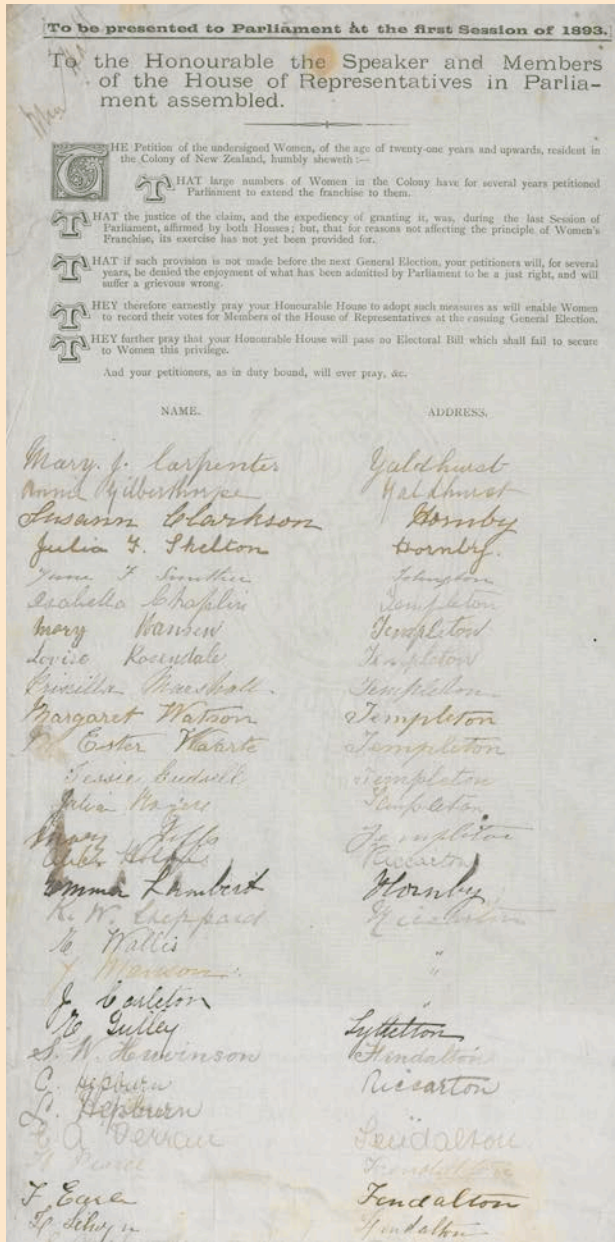 To be presented to Parliament at the first Session of 1893.
To the Honourable the Speaker and Members
of the House of Representatives in Parlia-
ment assembled.
THE Petition of the undersigned Women, of the age of twenty-one years and upwards, resident in
the Colony of New Zealand, humbly sheweth :—
THAT large numbers of Women in the Colony have for several years petitioned
Parliament to extend the franchise to them.
THAT the justice of the claim, and the expediency of granting it, was, during the last Session of
Parliament, affirmed by both Houses; but, that for reasons not affecting the principle of Women's
Franchise, its exercise has not yet been provided for.
THAT if such provision is not made before the next General Election, your petitioners will, for several
years, be denied the enjoyment of what has been admitted by Parliament to be a just right, and will
suffer a grievous wrong.
THEY therefore earnestly pray your Honourable House to adopt such measures as will enable Women
to record their votes for Members of the House of Representatives at the ensuing General Election.
THEY further pray that your Honourable House will pass no Electoral Bill which shall fail to secure
to Women this privilege.
And your petitioners, as in duty bound, will ever pray, &c.
NAME. ADDRESS.
Mary. J. Carpenter Yaldhurst
Annie Gilberthorpe Yaldhurst
Susann Clarkson Hornby
Julia F. Shelton Hornby.
Isabella Chaplin Templeton
Mary Hansen Templeton
Louise Rosendale Templeton
Marshall. Templeton
Margaret Watson Templeton
Ester Templeton
Jessie Templeton
Julia Templeton
Mary Templeton
Riccarton
Emma Lambert Hornby
K. W. Sheppard Riccarton
Wallis "
Manson. "
J Carleton "
Gulley Lyttelton
S. W. Fendalton
C. Hepburn Riccarton
L. Hepburn
A Ferrau Fendalton
Fendalton
F Eare Fendalton
Selwyn Fendalton